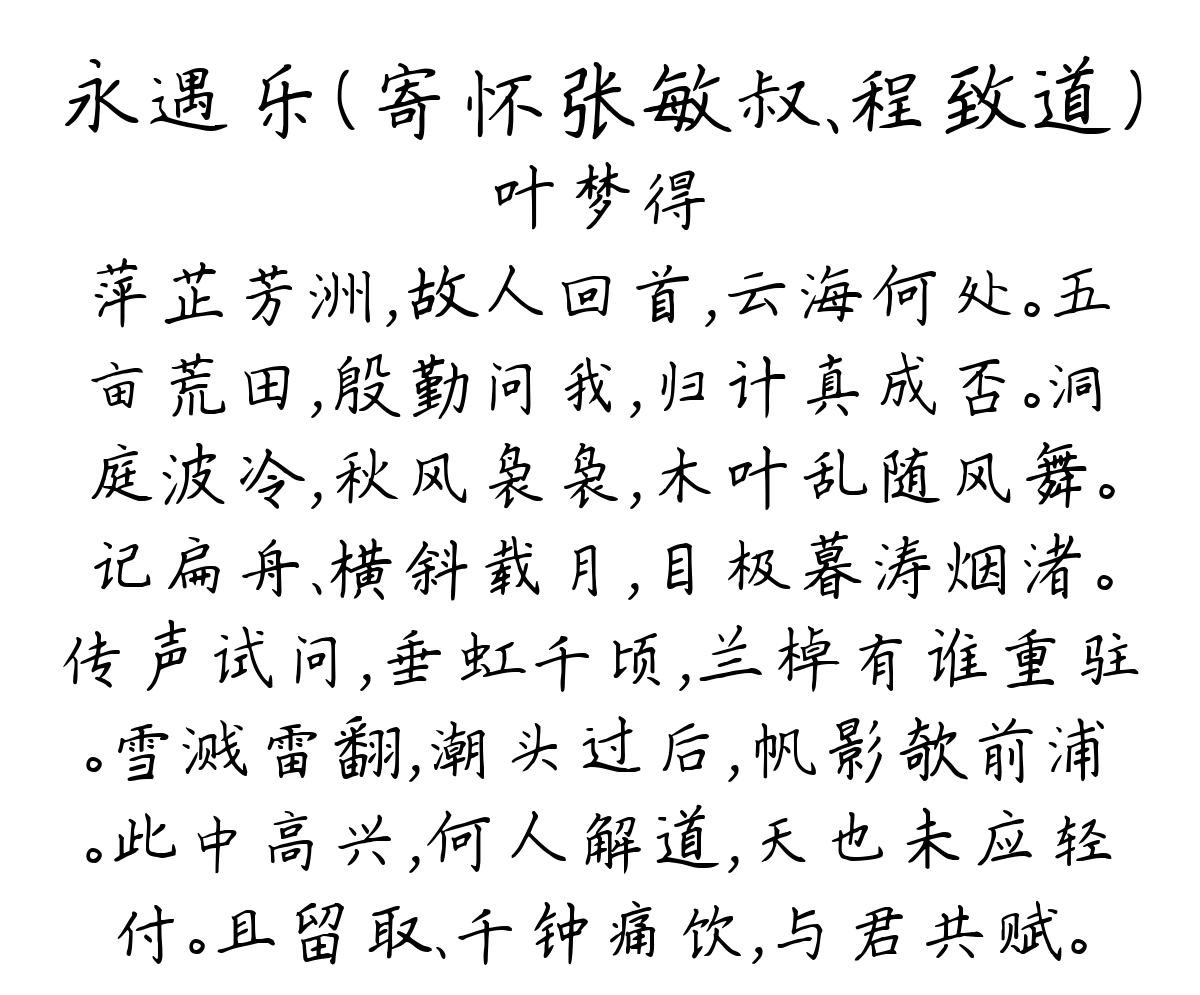 永遇乐(寄怀张敏叔、程致道)
叶梦得
萍芷芳洲,故人回首,云海何处。五
亩荒田,殷勤问我,归计真成否。洞
庭波冷,秋风袅袅,木叶乱随风舞。
记扁舟、横斜载月,目极暮涛烟渚。
传声试问,垂虹千顷,兰棹有谁重驻
。雪溅雷翻,潮头过后,帆影欹前浦
。此中高兴,何人解道,天也未应轻
付。且留取、千钟痛饮,与君共赋。